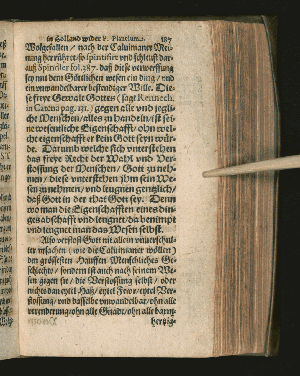 in Holland wider P. Plancium. 187
Wolgefallen / nach der Caluinianer Mei-
nung herrühret / so
auß Spindler fol. 187. daß diese verwerffung
sey mit dem Göttlichen wesen ein ding / vnd
ein vnwandelbarer bestendiger Wille. Die-
se freye Gewalt Gottes / (sagt Kennech.
in Catena pag. 131.) gegen alle vnd jegli-
che Menschen / alles zu handeln / ist sei-
ne wesenliche Eigenschafft / ohn wel-
che eigenschafft er kein Gott seyn wür-
de. Darumb welche sich vnterstehen
das freye Recht der Wahl vnd Ver-
stossung der Menschen / Gott zu neh-
men / diese vnterstehen jhm sein We-
sen zu nehmen / vnd leugnen gentzlich /
daß Gott in der that Gott sey. Denn
wo man die Eigenschafften eines din-
ges abschafft vnd leugnet / da benimpt
vnd leugnet man das Wesen selbst.
Also verstost Gott mit allein
vrsachen / (wie die Caluinianer wollen)
den grössesten Hauffen Menschliches Ge-
schlechts / sondern ist auch nach seinem We-
sen gegen sie / die Verstossung selbst / oder
nichts dan eytel Haß / eytel Zorn / eytel Ver-
stossung / vnd dasselbe vnwandelbar / ohn alle
verenderung / ohn alle Gnade / ohn alle barm-
hertzige-